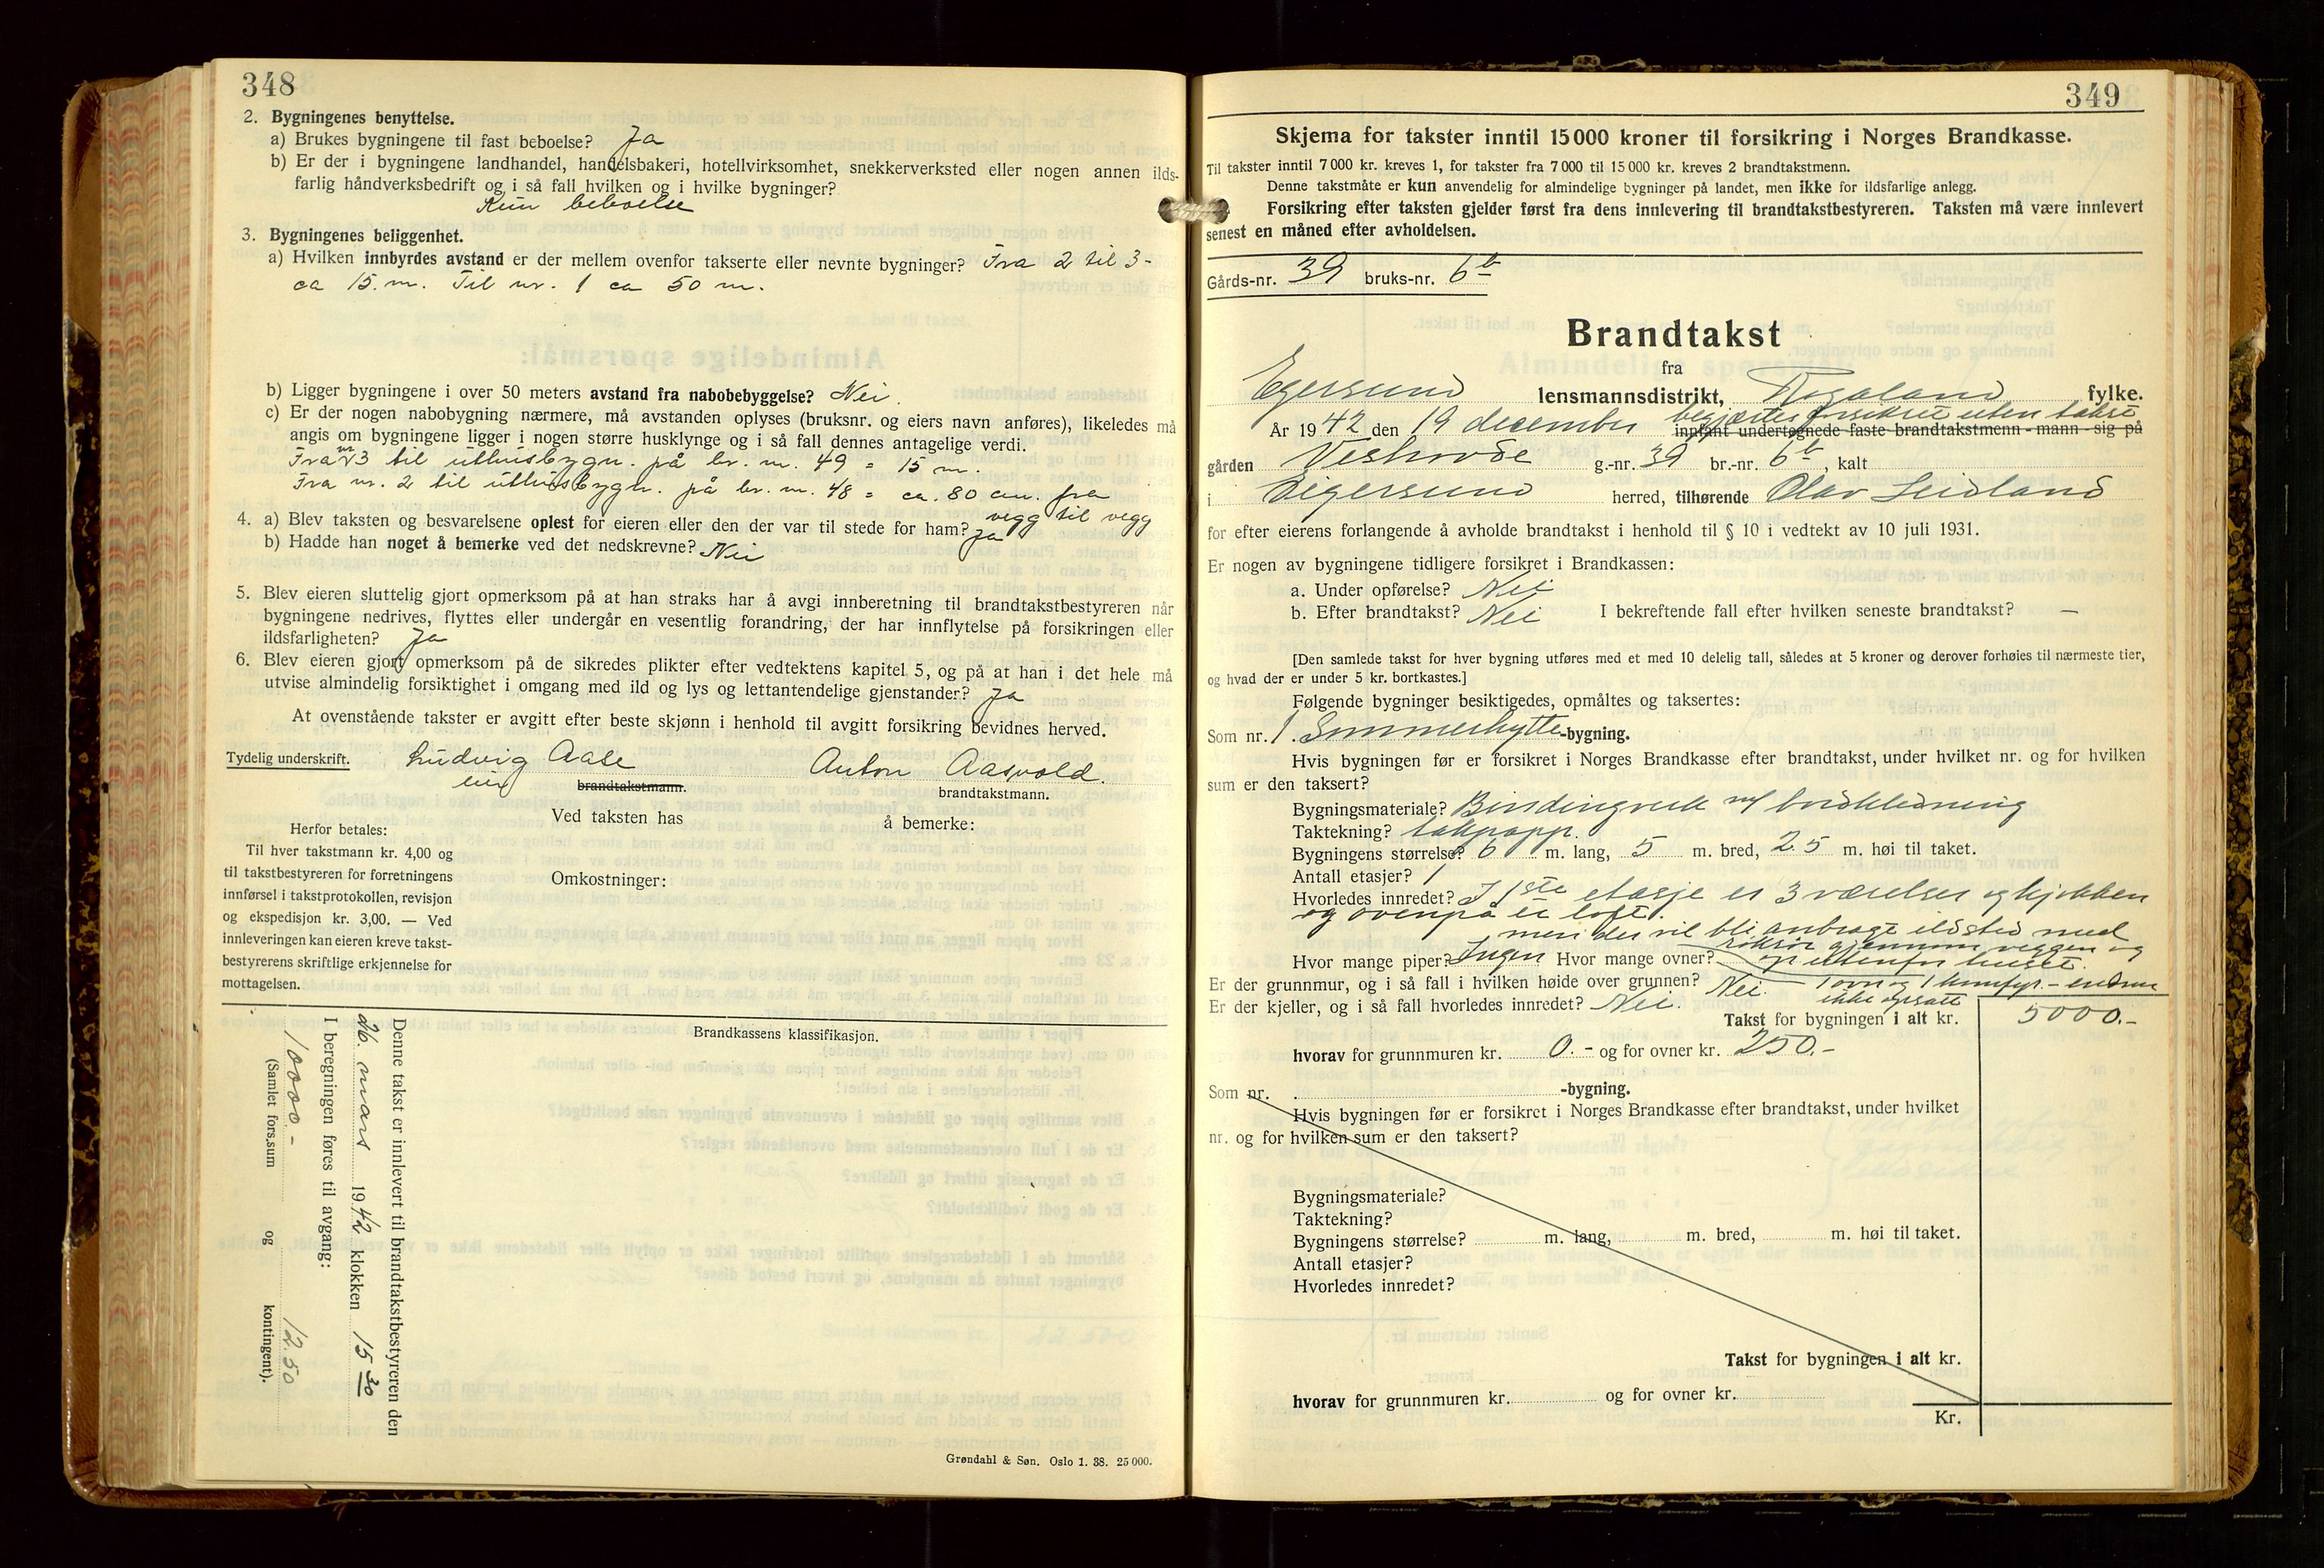 348
2. Bygningenes benyttelse.
a) Brukes bygningene til fast beboelse? Ja
b) Er der i bygningene landhandel, handelsbakeri, hotellvirksomhet, snekkerverksted eller nogen annen ilds-
farlig håndverksbedrift og i så fall hvilken og i hvilke bygninger?
Kun beboelse
3. Bygningenes beliggenhet.
a) Hvilken innbyrdes avstand er der mellem ovenfor takserte eller nevnte bygninger? Fra 2 til 3 -
ca 15. m. Til nr. 1 ca 50 m.
b) Ligger bygningene i over 50 meters avstand fra nabobebyggelse? Nei.
c) Er der nogen nabobygning nærmere, må avstanden oplyses (bruksnr. og eiers navn anføres), likeledes må
angis om bygningene ligger i nogen større husklynge og i så fall dennes antagelige verdi.
Fra nr 3 til uthusbygn. på br. nr. 49 = 15 m.
Fra nr. 2 til uthusbygn. på br. nr. 48 = ca. 80 cm. fra
vegg til vegg
4. a) Blev taksten og besvarelsene oplest for eieren eller den der var til stede for ham? Ja
b) Hadde han noget å bemerke ved det nedskrevne? Nei
5. Blev eieren sluttelig gjort opmerksom på at han straks har å avgi innberetning til brandtakstbestyreren når
bygningene nedrives, flyttes eller undergår en vesentlig forandring, der har innflytelse på forsikringen eller
ildsfarligheten? Ja
6. Blev eieren gjort opmerksom på de sikredes plikter efter vedtektens kapitel 5, og på at han i det hele må
utvise almindelig forsiktighet i omgang med ild og lys og lettantendelige gjenstander? Ja
At ovenstående takster er avgitt efter beste skjønn i henhold til avgitt forsikring bevidnes herved.
Tydelig underskrift. Ludvig Aase Anton Aasvold.
eier brandtakstmann. brandtakstmann.
Ved taksten has å bemerke:
Herfor betales:
Til hver takstmann kr. 4,00 og
til takstbestyreren for forretningens
innførsel i takstprotokollen, revisjon
og ekspedisjon kr. 3,00. — Ved
innleveringen kan eieren kreve takst-
bestyrerens skriftlige erkjennelse for
mottagelsen.
Omkostninger:
Brandkassens klassifikasjon.
Denne takst er innlevert til brandtakstbestyreren den
26. mars 1942 klokken 15 30
I beregningen føres til avgang:
10000 - 12.50
(Samlet fors.sum og kontingent).
Grøndahl & Søn. Oslo 1. 38. 25 000.
349
Skjema for takster inntil 15 000 kroner til forsikring i Norges Brandkasse.
Til takster inntil 7 000 kr. kreves 1, for takster fra 7 000 til 15 000 kr. kreves 2 brandtakstmenn.
Denne takstmåte er kun anvendelig for almindelige bygninger på landet, men ikke for ildsfarlige anlegg.
Forsikring efter taksten gjelder først fra dens innlevering til brandtakstbestyreren. Taksten må være innlevert
senest en måned efter avholdelsen.
Gårds-nr. 39 bruks-nr. 6b
Brandtakst
fra
Egersund lensmannsdistrikt, Rogaland fylke.
begjærtes forsikret uten takst
År 1942 den 19 december innfant undertegnede faste brandtakstmenn - mann - sig på
gården g.-nr. 39 br.-nr. 6b, kalt
i Eigersund herred, tilhørende Olav Leidland
for efter eierens forlangende å avholde brandtakst i henhold til § 10 i vedtekt av 10 juli 1931.
Er nogen av bygningene tidligere forsikret i Brandkassen:
a. Under opførelse? Nei
b. Efter brandtakst? Nei I bekreftende fall efter hvilken seneste brandtakst? —
[Den samlede takst for hver bygning utføres med et med 10 delelig tall, således at 5 kroner og derover forhøies til nærmeste tier,
og hvad der er under 5 kr. bortkastes.]
Følgende bygninger besiktigedes, opmåltes og taksertes:
Som nr. 1. Sommerhytte-bygning.
Hvis bygningen før er forsikret i Norges Brandkasse efter brandtakst, under hvilket nr. og for hvilken
sum er den taksert?
Bygningsmateriale? Bindingverk m/ bordkledning
Taktekning? takpapp.
Bygningens størrelse? 6 m. lang, 5 m. bred, 2.5 m. høi til taket.
Antall etasjer? 1
Hvorledes innredet? I 1ste etasje er 3 værelser og kjøkken
og ovenpå er loft.
men der vil bli anbragt ildsted med
røkrør gjennom veggen og
Hvor mange piper? Ingen Hvor mange ovner? op utenfor huset.
Er der grunnmur, og i så fall i hvilken høide over grunnen? Nei. 1 ovn og 1 komfyr - endnu
ikke opsatt
Er der kjeller, og i så fall hvorledes innredet? Nei.
Takst for bygningen i alt kr. 5000.-
hvorav for grunnmuren kr. 0.- og for ovner kr. 250.-
Som nr. -bygning.
Hvis bygningen før er forsikret i Norges Brandkasse efter brandtakst, under hvilket
nr. og for hvilken sum er den taksert?
Bygningsmateriale?
Taktekning?
Bygningens størrelse? m. lang, m. bred, m. høi til taket.
Antall etasjer?
Hvorledes innredet?
Takst for bygningen i alt kr.
hvorav for grunnmuren kr. og for ovner kr.
Kr.